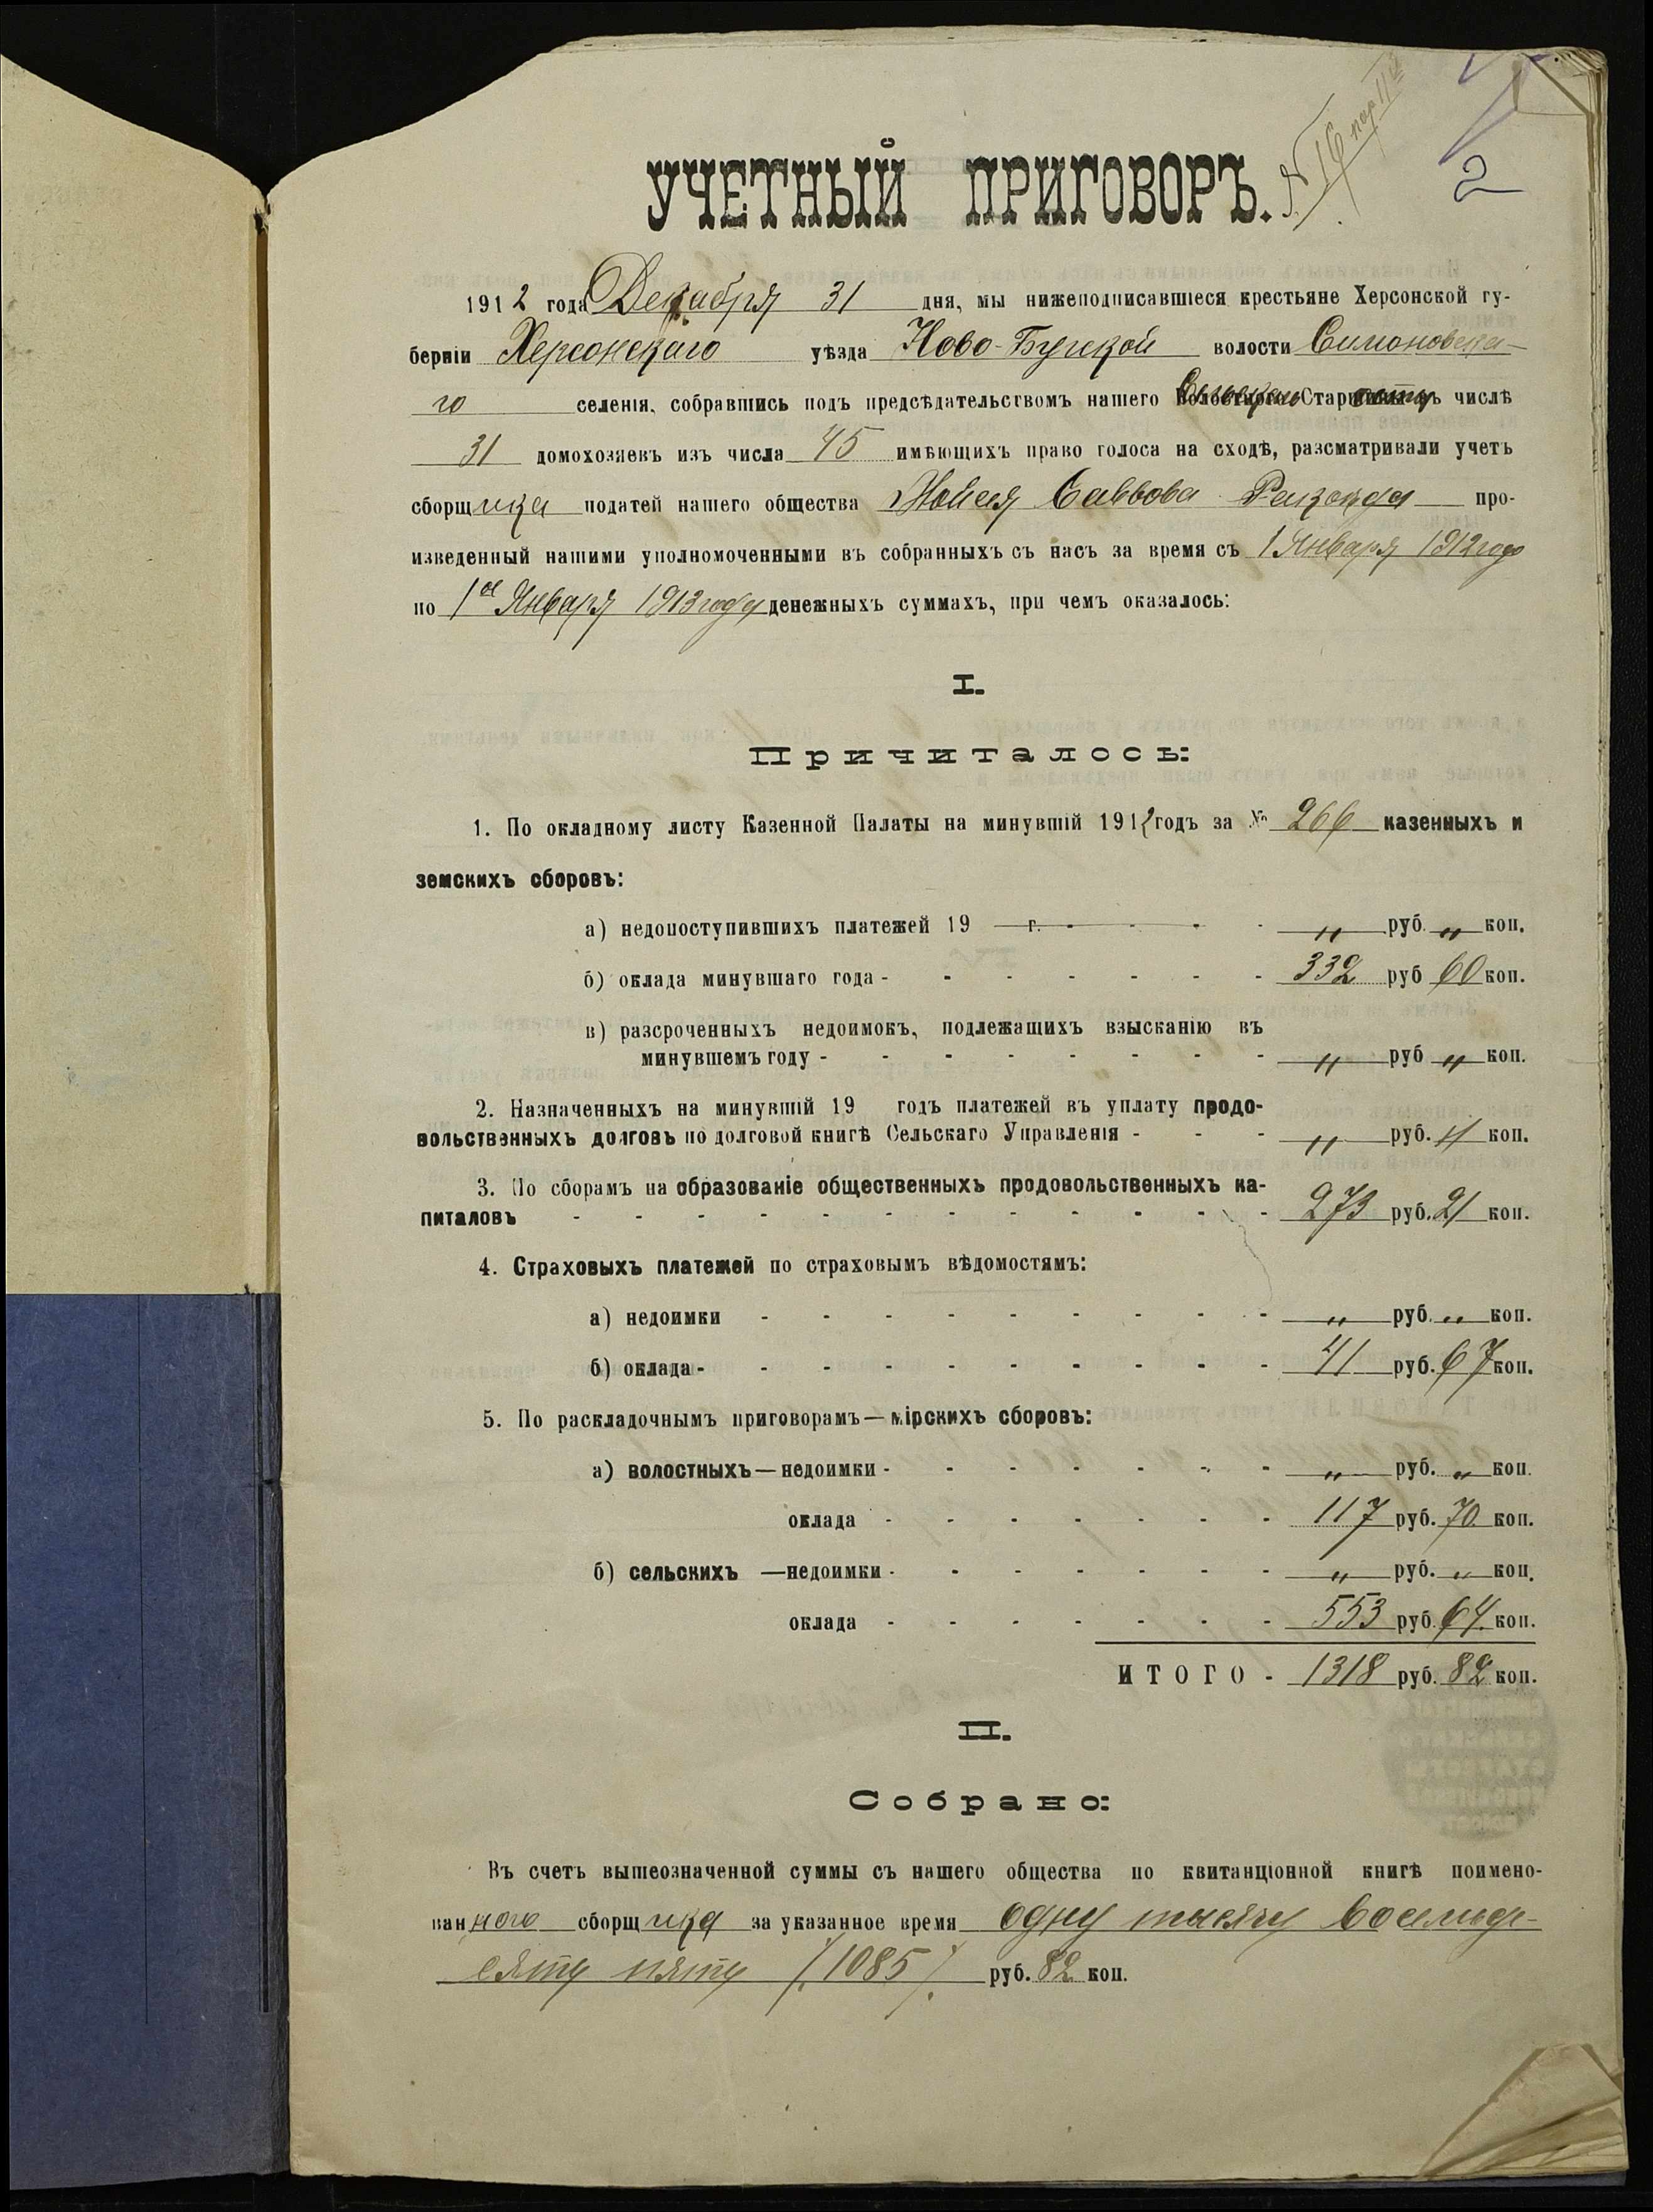 № 16 пар 11й
2
УЧЕТНЫЙ ПРИГОВОРЪ.
1912 года Декабря 31 дня, мы нижеподписавшіеся крестьяне Херсонской гу-
берніи Херсонскаго уѣзда Ново-Бугской волости Симоновска-
го селенія, собравшись подъ предсѣдательствомъ нашего Сельскаго Старосты въ числѣ
31 домохозяевъ изъ числа 45 имѣющихъ право голоса на сходѣ, разсматривали учетъ
сборщика податей нашего общества Моисея Саввова про-
изведенный нашими уполномоченными въ собранныхъ съ насъ за время съ 1 Января 1912 года
по 1ое Января 1913 года денежныхъ суммахъ, при чемъ оказалось:
I.
Причиталось:
1. По окладному листу Казенной Палаты на минувшій 1912 годъ за № 266 казенныхъ и
земскихъ сборовъ:
а) недопоступившихъ платежей 19 — г. - - - - „ руб. „ коп.
б) оклада минувшаго года - - - - - - - 332 руб 60 коп.
в) разсроченныхъ недоимокъ, подлежащихъ взысканію въ
минувшемъ году - - - - - - - - „ руб „ коп.
2. Назначенныхъ на минувшій 19 годъ платежей въ уплату продо-
вольственныхъ долговъ по долговой книгѣ Сельскаго Управленія - - - „ руб. „ коп.
3. По сборамъ на образованіе общественныхъ продовольственныхъ ка-
питаловъ - - - - - - - - - - - - 273 руб. 21 коп.
4. Страховыхъ платежей по страховымъ вѣдомостямъ:
а) недоимки - - - - - - - - - „ руб. „ коп.
б) оклада - - - - - - - - - - 41 руб. 67 коп.
5. По раскладочнымъ приговорамъ — мірскихъ сборовъ:
а) волостныхъ — недоимки - - - - - - - „ руб. „ коп.
оклада - - - - - - - 117 руб. 70 коп.
б) сельскихъ — недоимки - - - - - - - „ руб. „ коп.
оклада - - - - - - - 553 руб. 64 коп.
ИТОГО - 1318 руб. 82 коп.
II.
Собрано:
Въ счетъ вышеозначенной суммы съ нашего общества по квитанціонной книгѣ поимено-
ванного сборщика за указанное время одну тысячу восемьде-
сятъ пять /1085/ руб. 82 коп.